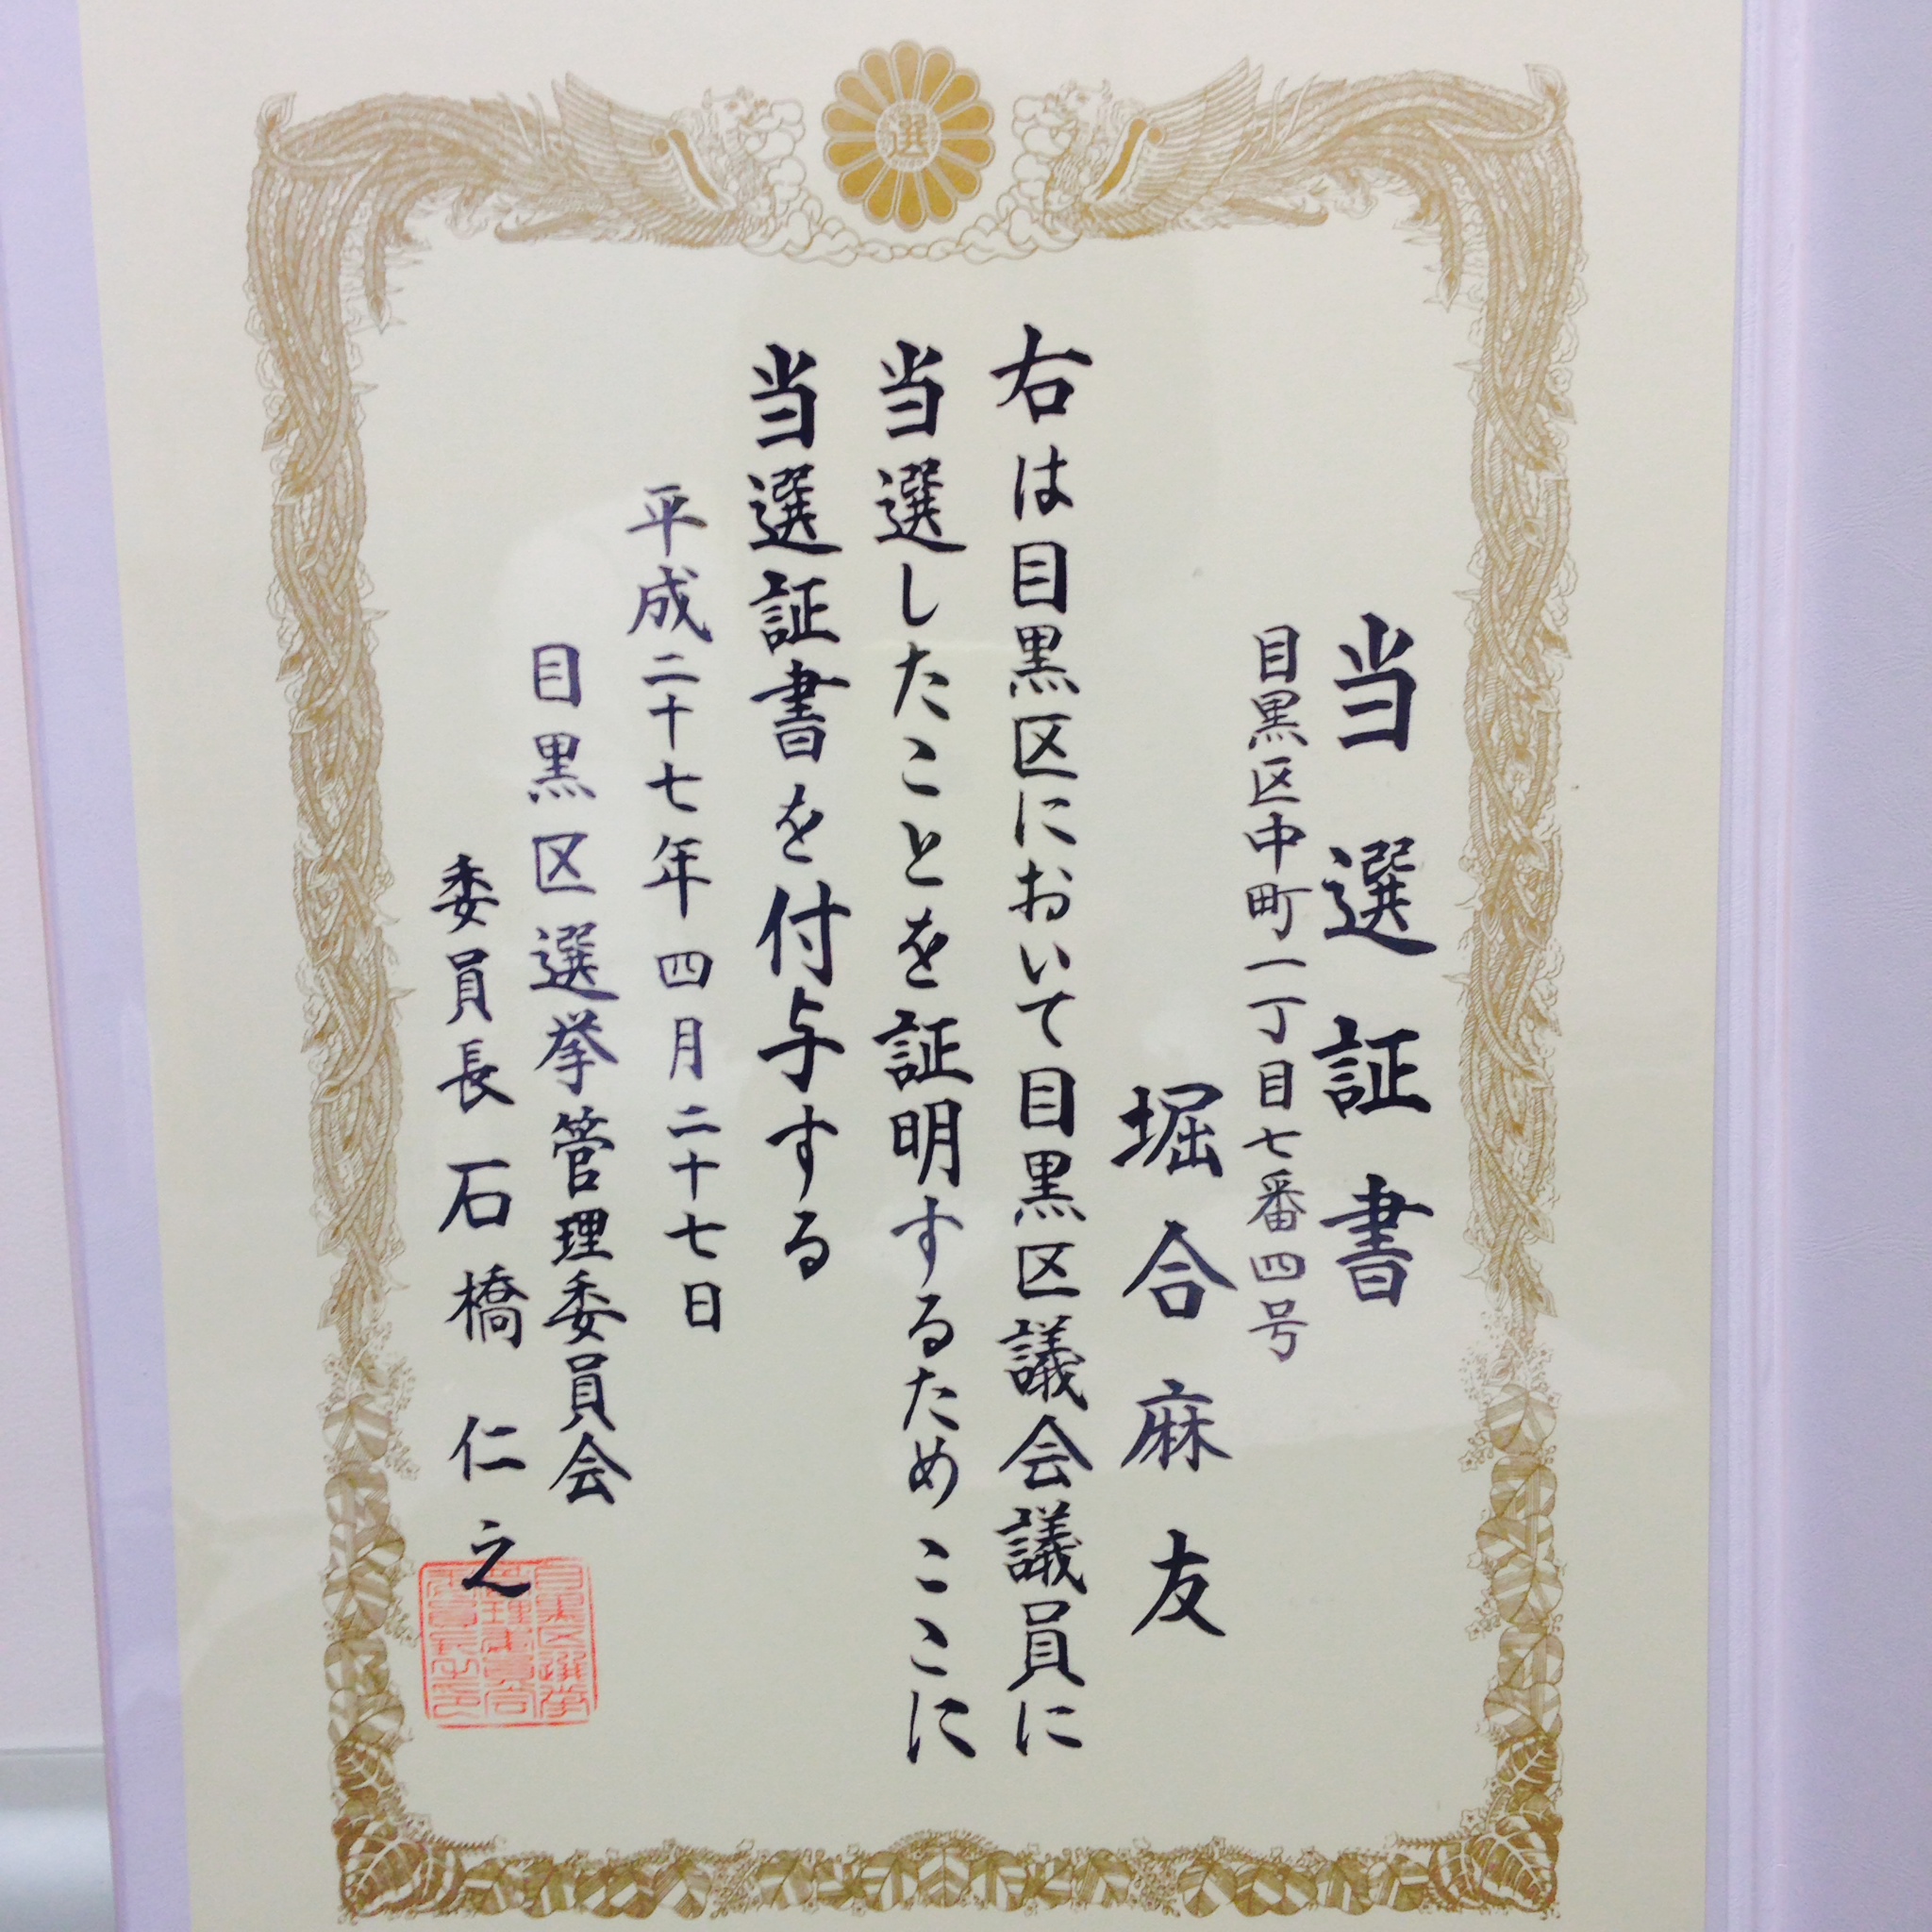 選
当選証書
目黒区中町一丁目七番四号
堀合麻友
右は目黒区において目黒区議会議員に
当選したことを証明するためここに
当選証書を付与する
平成二十七年四月二十七日
目黒区選挙管理委員会
委員長石橋仁之
目黒区選挙
管理委員会
委員長之印